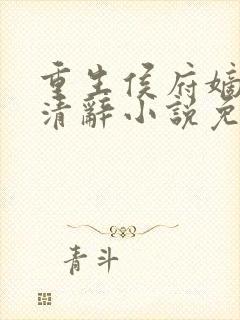 重生侯府嫡
清辞小说免
青斗